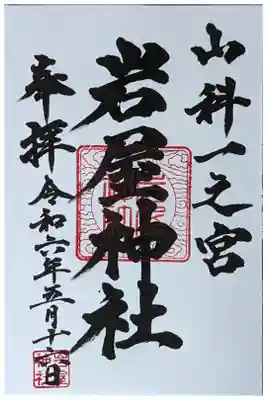 山科一之宮
岩屋神社
奉拝 令和六年五月十六日